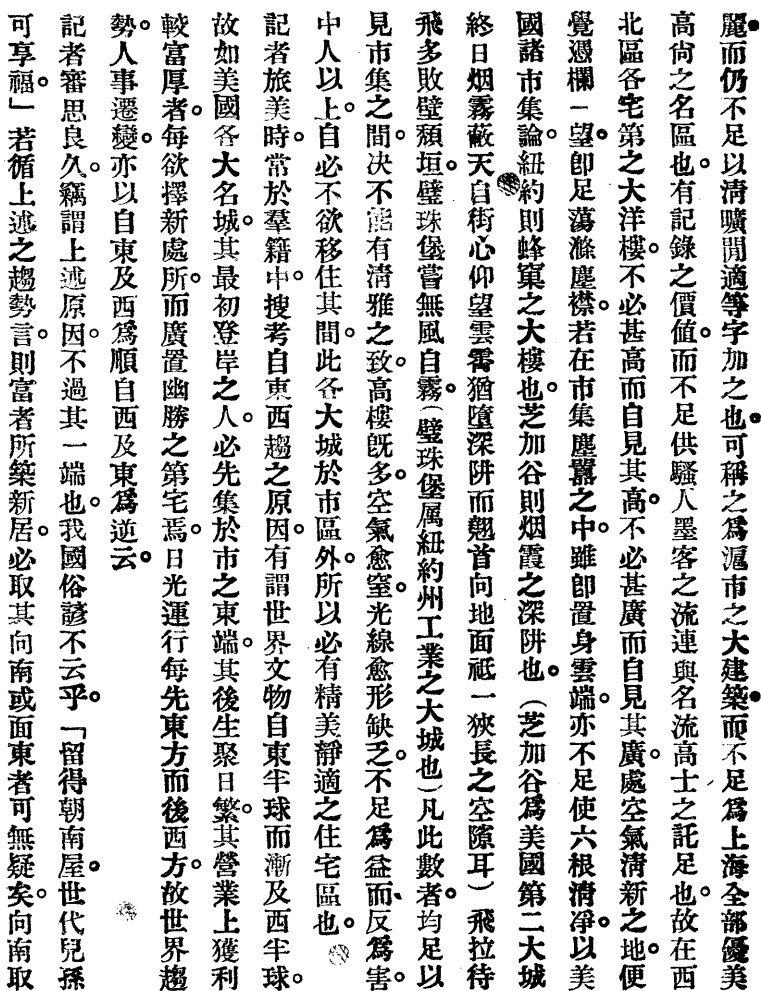 麗而仍不足以淸曠閒適等字加之也。可稱之爲滬市之大建築而不足爲上海全部優美
高尙之名區也。有記錄之價値。而不足供騷人墨客之流連與名流高士之託足也。故在西
北區各宅第之大洋樓。不必甚高而自見其高。不必甚廣而自見其廣。處空氣淸新之地。便
覺憑欄一望。卽足蕩滌塵襟。若在市集塵囂之中。雖卽置身雲端。亦不足使六根淸凈。以美
國諸市集論。紐約則蜂窠之大樓也。芝加谷則烟霞之深阱也。（芝加谷爲美國第二大城
終日烟霧蔽天自街心仰望雲霄猶墮深阱而翹首向地面祗一狹長之空隙耳）飛拉待
飛多敗壁頹垣。璧珠堡嘗無風自霧。（璧珠堡属紐約州工業之大城也）凡此數者。均足以
見市集之間。决不能有淸雅之致。高樓旣多。空氣愈窒。光線愈形缺乏。不足爲益而、反爲害。
中人以上。自必不欲移住其間。此各大城於市區外。所以必有精美靜適之住宅區也。
記者旅美時。常於羣籍中。搜考自東西趨之原因。有謂世界文物自東半球而漸及西半球。
故如美國各大名城。其最初登岸之人。必先集於市之東端。其後生聚日繁。其營業上獲利
較富厚者。每欲擇新處所。而廣置幽勝之第宅焉。日光運行每先東方而後西方。故世界趨
勢。人事遷變。亦以自東及西爲順自西及東爲逆云。
記者審思良久。竊謂上述原因。不過其一端也。我國俗諺不云乎。「留得朝南屋。世代兒孫
可享福」若循上述之趨勢言。則富者所築新居。必取其向南或面東者可無疑矣。向南取